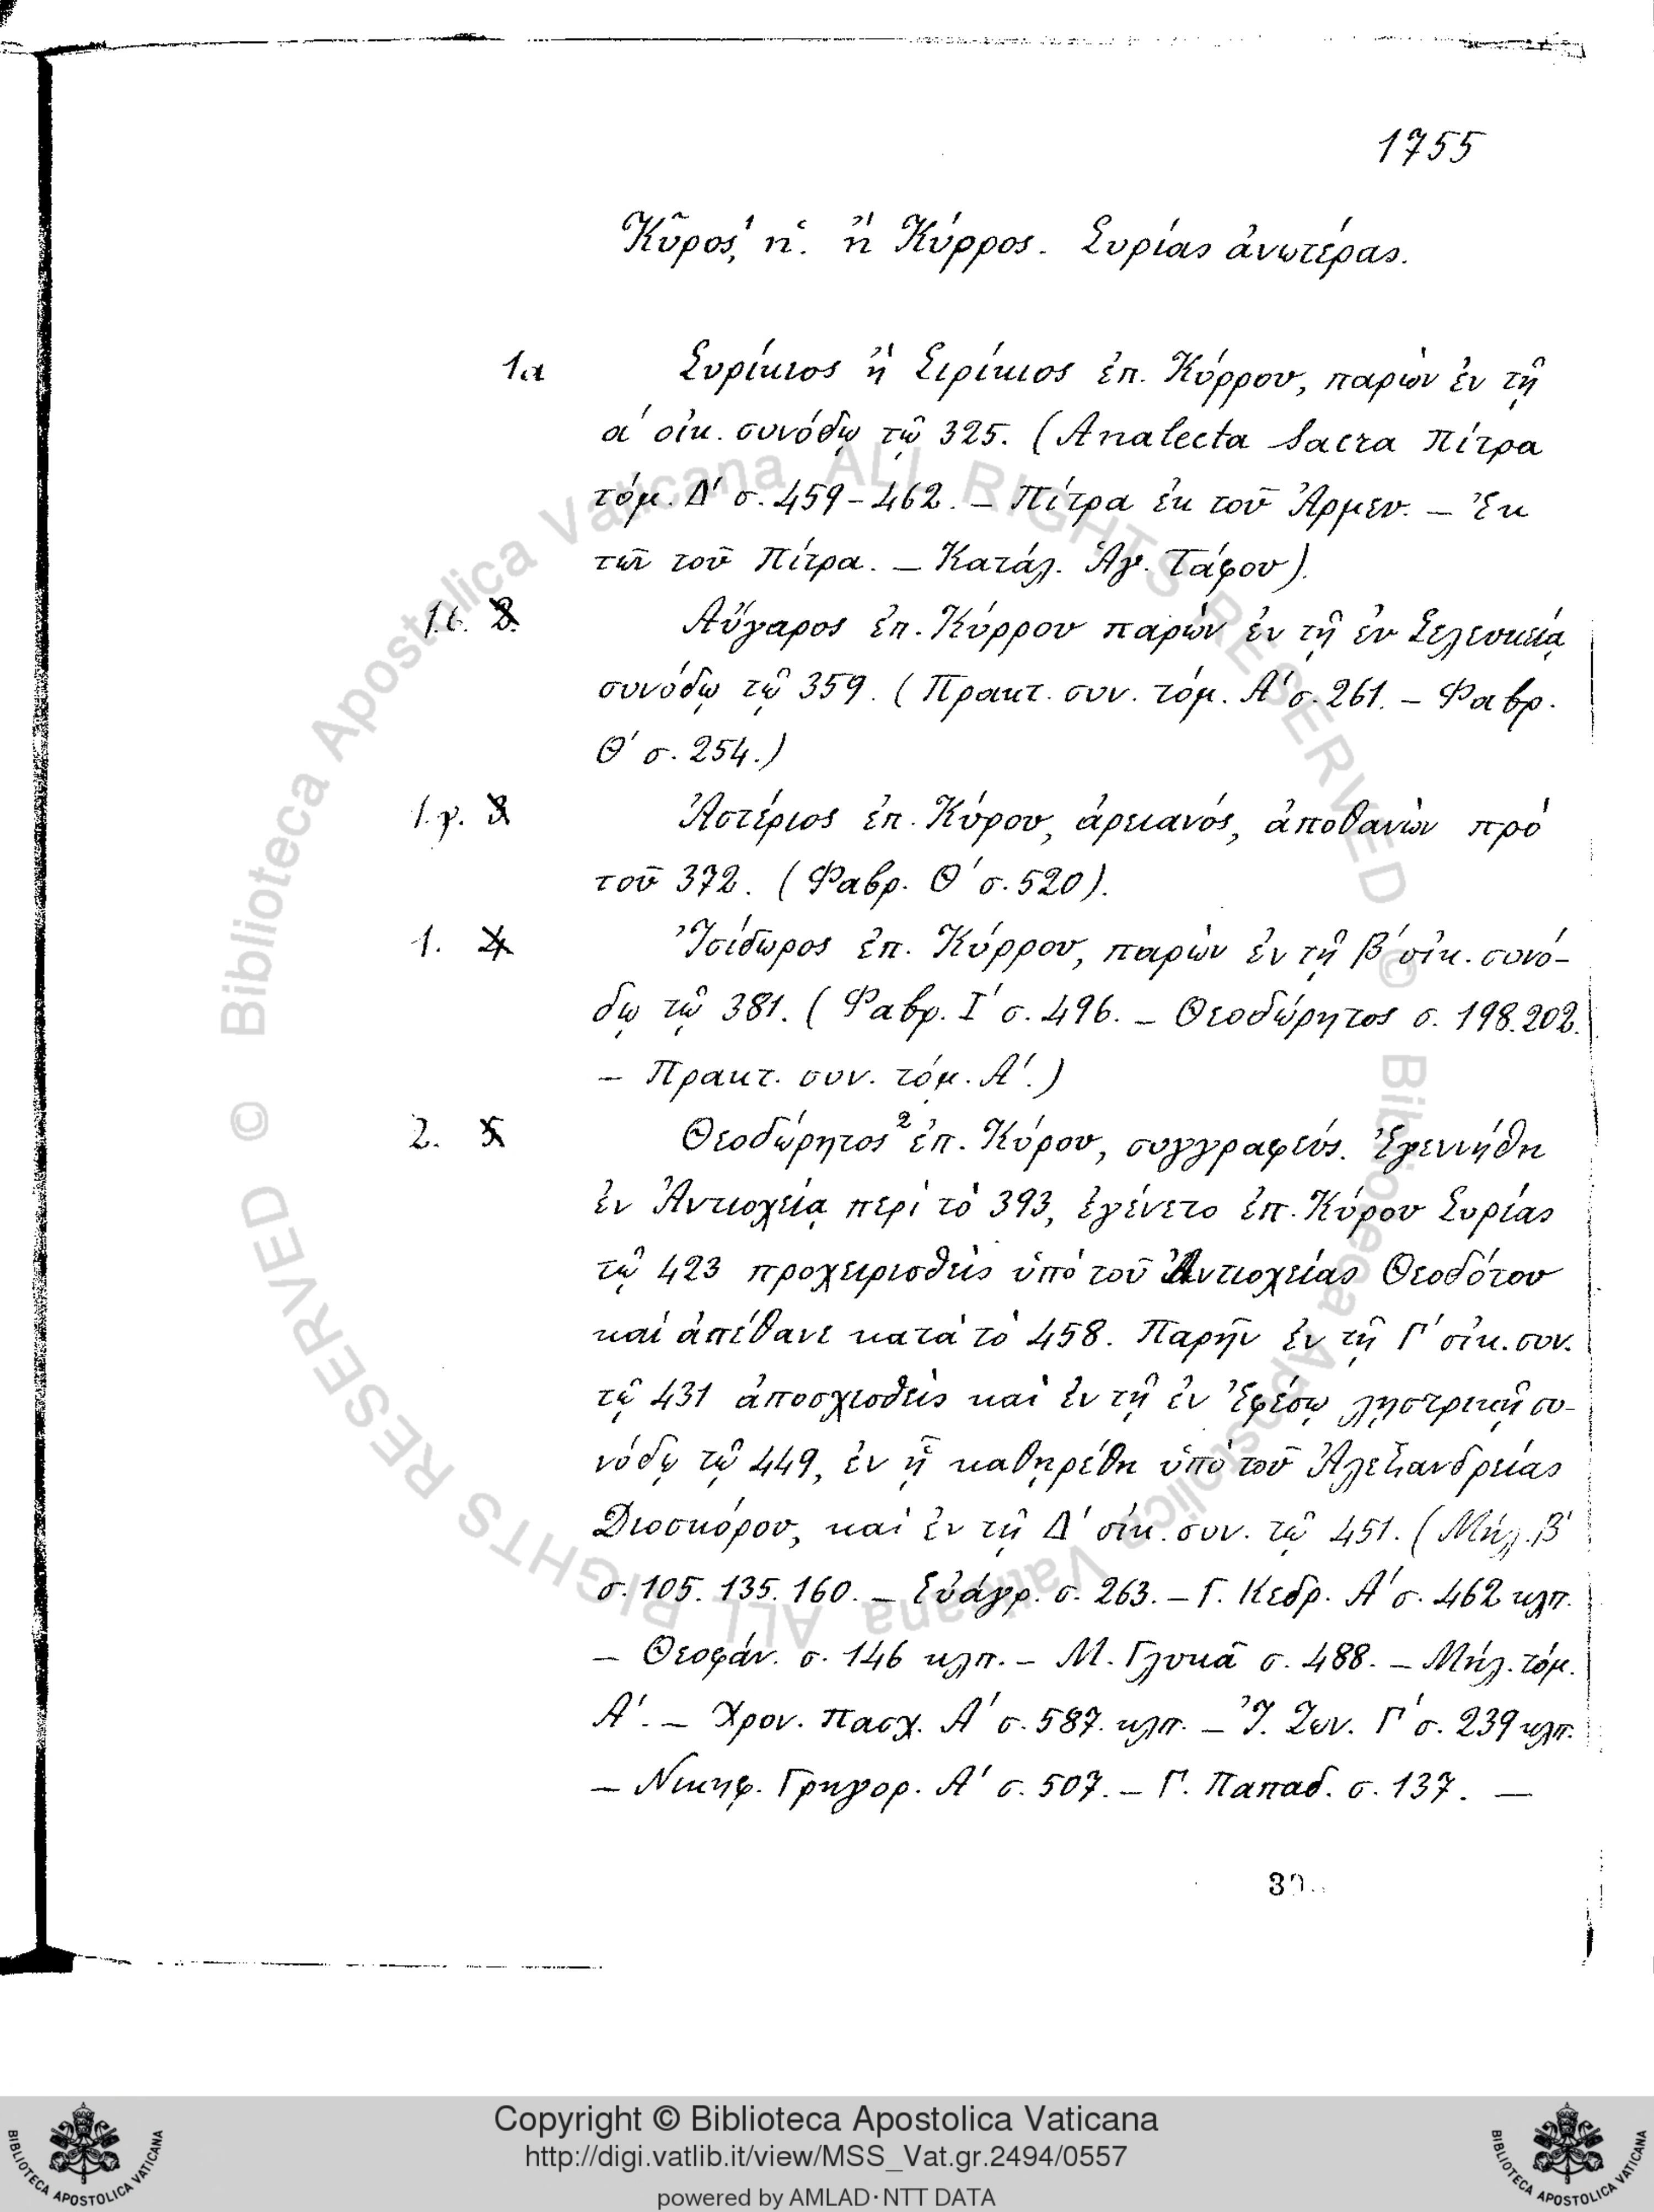 1755
Κῦρος, ἡ. ἢ Κύρρος. Συρίας ἀνωτέρας.
1α Συρίκιος ἢ Σιρίκιος ἐπ. Κύρρου, παρὼν ἐν τῇ
α' οἰκ. συνόδῳ τῷ 325. (Analecta Sacra Πίτρα
τόμ. Δ' σ. 459-462. – Πίτρα ἐκ τοῦ Ἀρμεν. – Ἐκ
τῶν τοῦ Πίτρα. – Κατάλ. Ἁγ. Τάφου).
1.β. 2. Αὔγαρος ἐπ. Κύρρου παρὼν ἐν τῇ ἐν Σελευκείᾳ
συνόδῳ τῷ 359. (Πρακτ. συν. τόμ. Α' σ. 261. – Φαβρ.
Θ' σ. 254.)
1.γ. 3 Ἀστέριος ἐπ. Κύρου, ἀρειανός, ἀποθανὼν πρὸ
τοῦ 372. (Φαβρ. Θ' σ. 520).
1. 4 Ἰσίδωρος ἐπ. Κύρρου, παρὼν ἐν τῇ β' οἰκ. συνό-
δῳ τῷ 381. (Φαβρ. Ι' σ. 496. – Θεοδώρητος σ. 198. 202.
– Πρακτ. συν. τόμ. Α'.)
2. 5 Θεοδώρητος² ἐπ. Κύρου, συγγραφεύς. Ἐγεννήθη
ἐν Ἀντιοχείᾳ περὶ τὸ 393, ἐγένετο ἐπ. Κύρου Συρίας
τῷ 423 προχειρισθεὶς ὑπὸ τοῦ Ἀντιοχείας Θεοδότου
καὶ ἀπέθανε κατὰ τὸ 458. Παρῆν ἐν τῇ Γ' οἰκ. συν.
τῷ 431 ἀποσχισθεὶς καὶ ἐν τῇ ἐν Ἐφέσῳ λῃστρικῇ συ-
νόδῳ τῷ 449, ἐν ᾗ καθῃρέθη ὑπὸ τοῦ Ἀλεξανδρείας
Διοσκόρου, καὶ ἐν τῇ Δ' οἰκ. συν. τῷ 451. (Μήλ. Β'
σ. 105. 135. 160. – Εὐάγρ. σ. 263. – Γ. Κεδρ. Α' σ. 462 κλπ.
– Θεοφάν. σ. 146 κλπ. – Μ. Γλυκᾶ σ. 488. – Μήλ. τόμ.
Α'. – Χρον. Πασχ. Α' σ. 587. κλπ. – Ἰ. Ζων. Γ' σ. 239 κλπ.
– Νικηφ. Γρηγορ. Α' σ. 507. – Γ. Παπαδ. σ. 137. –
© Biblioteca Apostolica Vaticana ALL RIGHTS RESERVED
© Biblioteca Apostolica Vaticana ALL RIGHTS RESERVED
Copyright © Biblioteca Apostolica Vaticana
http://digi.vatlib.it/view/MSS_Vat.gr.2494/0557
powered by AMLAD·NTT DATA
BIBLIOTECA APOSTOLICA VATICANA
BIBLIOTECA APOSTOLICA VATICANA